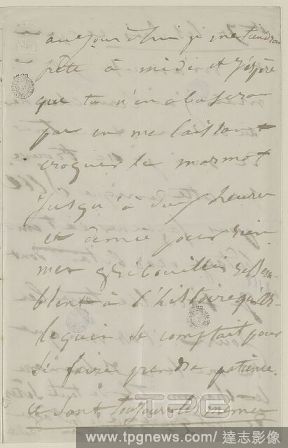 aujourd'hui je me tiendrai
prête à midi et j'espère
que tu n'en abuseras
pas en me laissant
croquer le marmot
jusqu'à deux heures
et demie pour rien
mes gribouillis ressem
blent à l'histoire qu'Ar
lequin se comptait pour
se faire prendre patience
Ce sont toujours les mêmes
www.tpgnews.com/ 達志影像